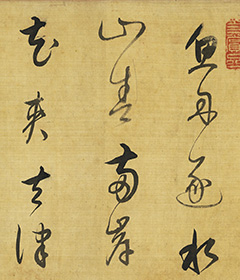 魚舟逐水
山春兩岸
花夾去津